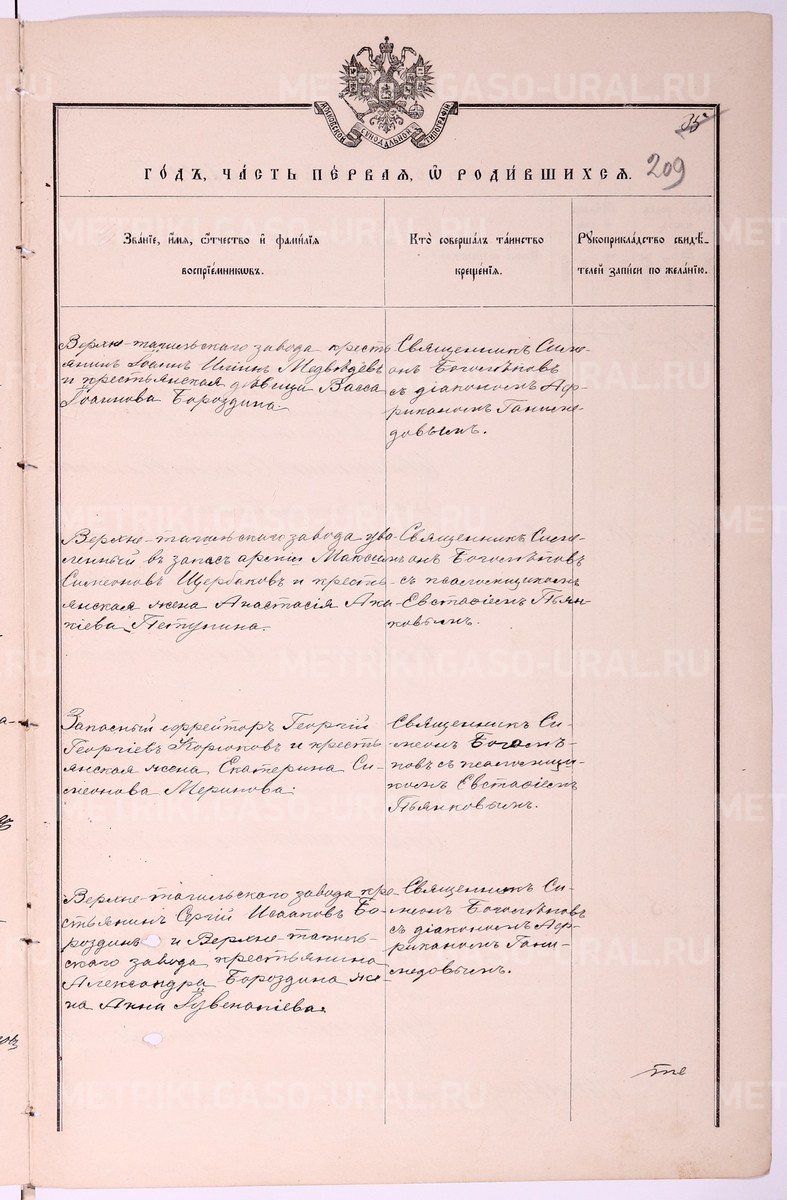 МОСКОВСКОЙ СѴНОДАЛЬНОЙ ТИПОГРАФІИ
35
209
ГО́ДЪ, ЧА́СТЬ ПЕ́РВАЯ, Ѡ҆ РОДИ́ВШИХСЯ.
Зва́ніе, и҆́мя, ѻ҆́тчество и҆ фами́лія
воспріе́мникѡвъ.
Кто̀ соверша́лъ та́инство
креще́нія.
Рꙋкоприкла́дство свидѣ́-
телей за́писи по жела́нію.
Верхне-тагильскаго завода кресть
янинъ Іоаннъ Илiинъ Медвѣдевъ
и крестьянская дѣвица Васса
Іоаннова Бороздина
Священникъ Симе-
онъ Боголѣповъ
съ діакономъ Аф-
риканомъ Ганиме-
довымъ.
Верхне-тагильскаго завода уво-
ленный въ запасъ арміи Максимъ
Симеоновъ Щербаковъ и кресть-
янская жена Анастасія Ака-
кіева Петунина.
Священникъ Симе-
онъ Боголѣповъ
съ псаломщикомъ
Евстафіемъ Пьян-
ковымъ.
Запасный ефрейторъ Георгій
Георгіевъ Корюковъ и кресть
янская жена Екатерина Си-
меонова Меринова.
Священникъ Си-
меонъ Боголѣ-
повъ съ псаломщи-
комъ Евстафіемъ
Пьянковымъ.
Верхне-тагильскаго завода кре-
стьянинъ Сергій Исааковъ Бо-
роздинъ и Верхне-тагиль-
скаго завода крестьянина
Александра Бороздина же-
на Анна Іувеналіева.
Священникъ Си-
меонъ Боголѣповъ
съ діакономъ Аф-
риканомъ Гани-
медовымъ.
METRIKI.GASO-URAL.RU